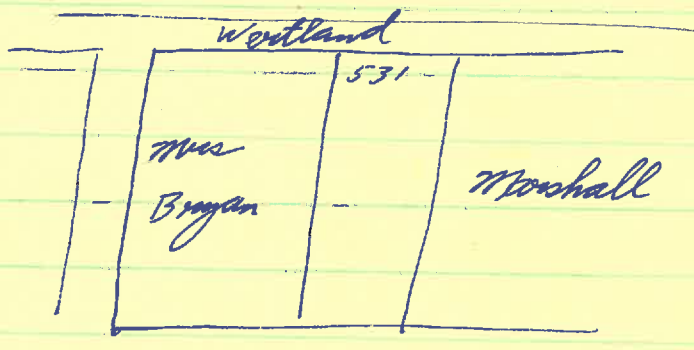 Wertland
531
Mrs
Bryan
Marshall